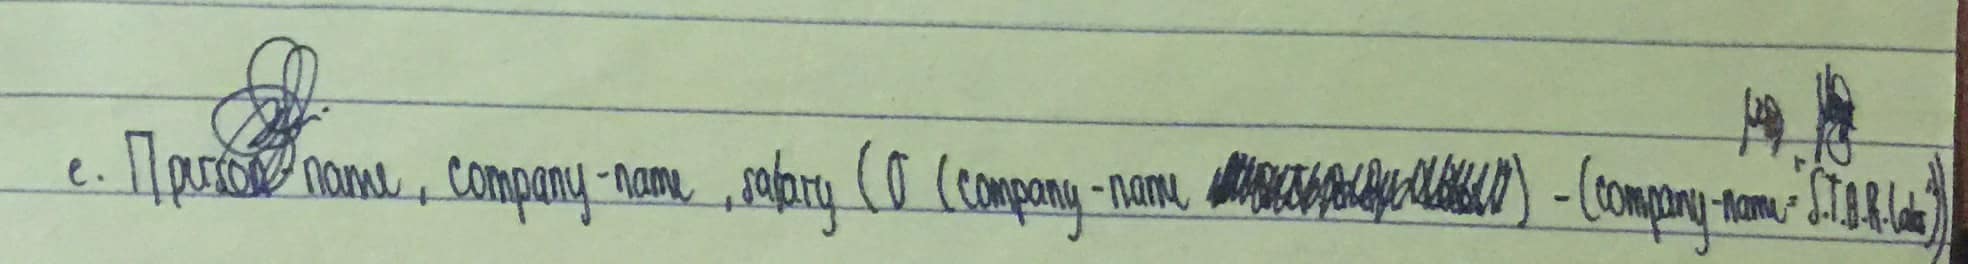 e. Π person name, company-name, salary (σ (company-name ) - (company-name = "S.T.A.R. Labs"))